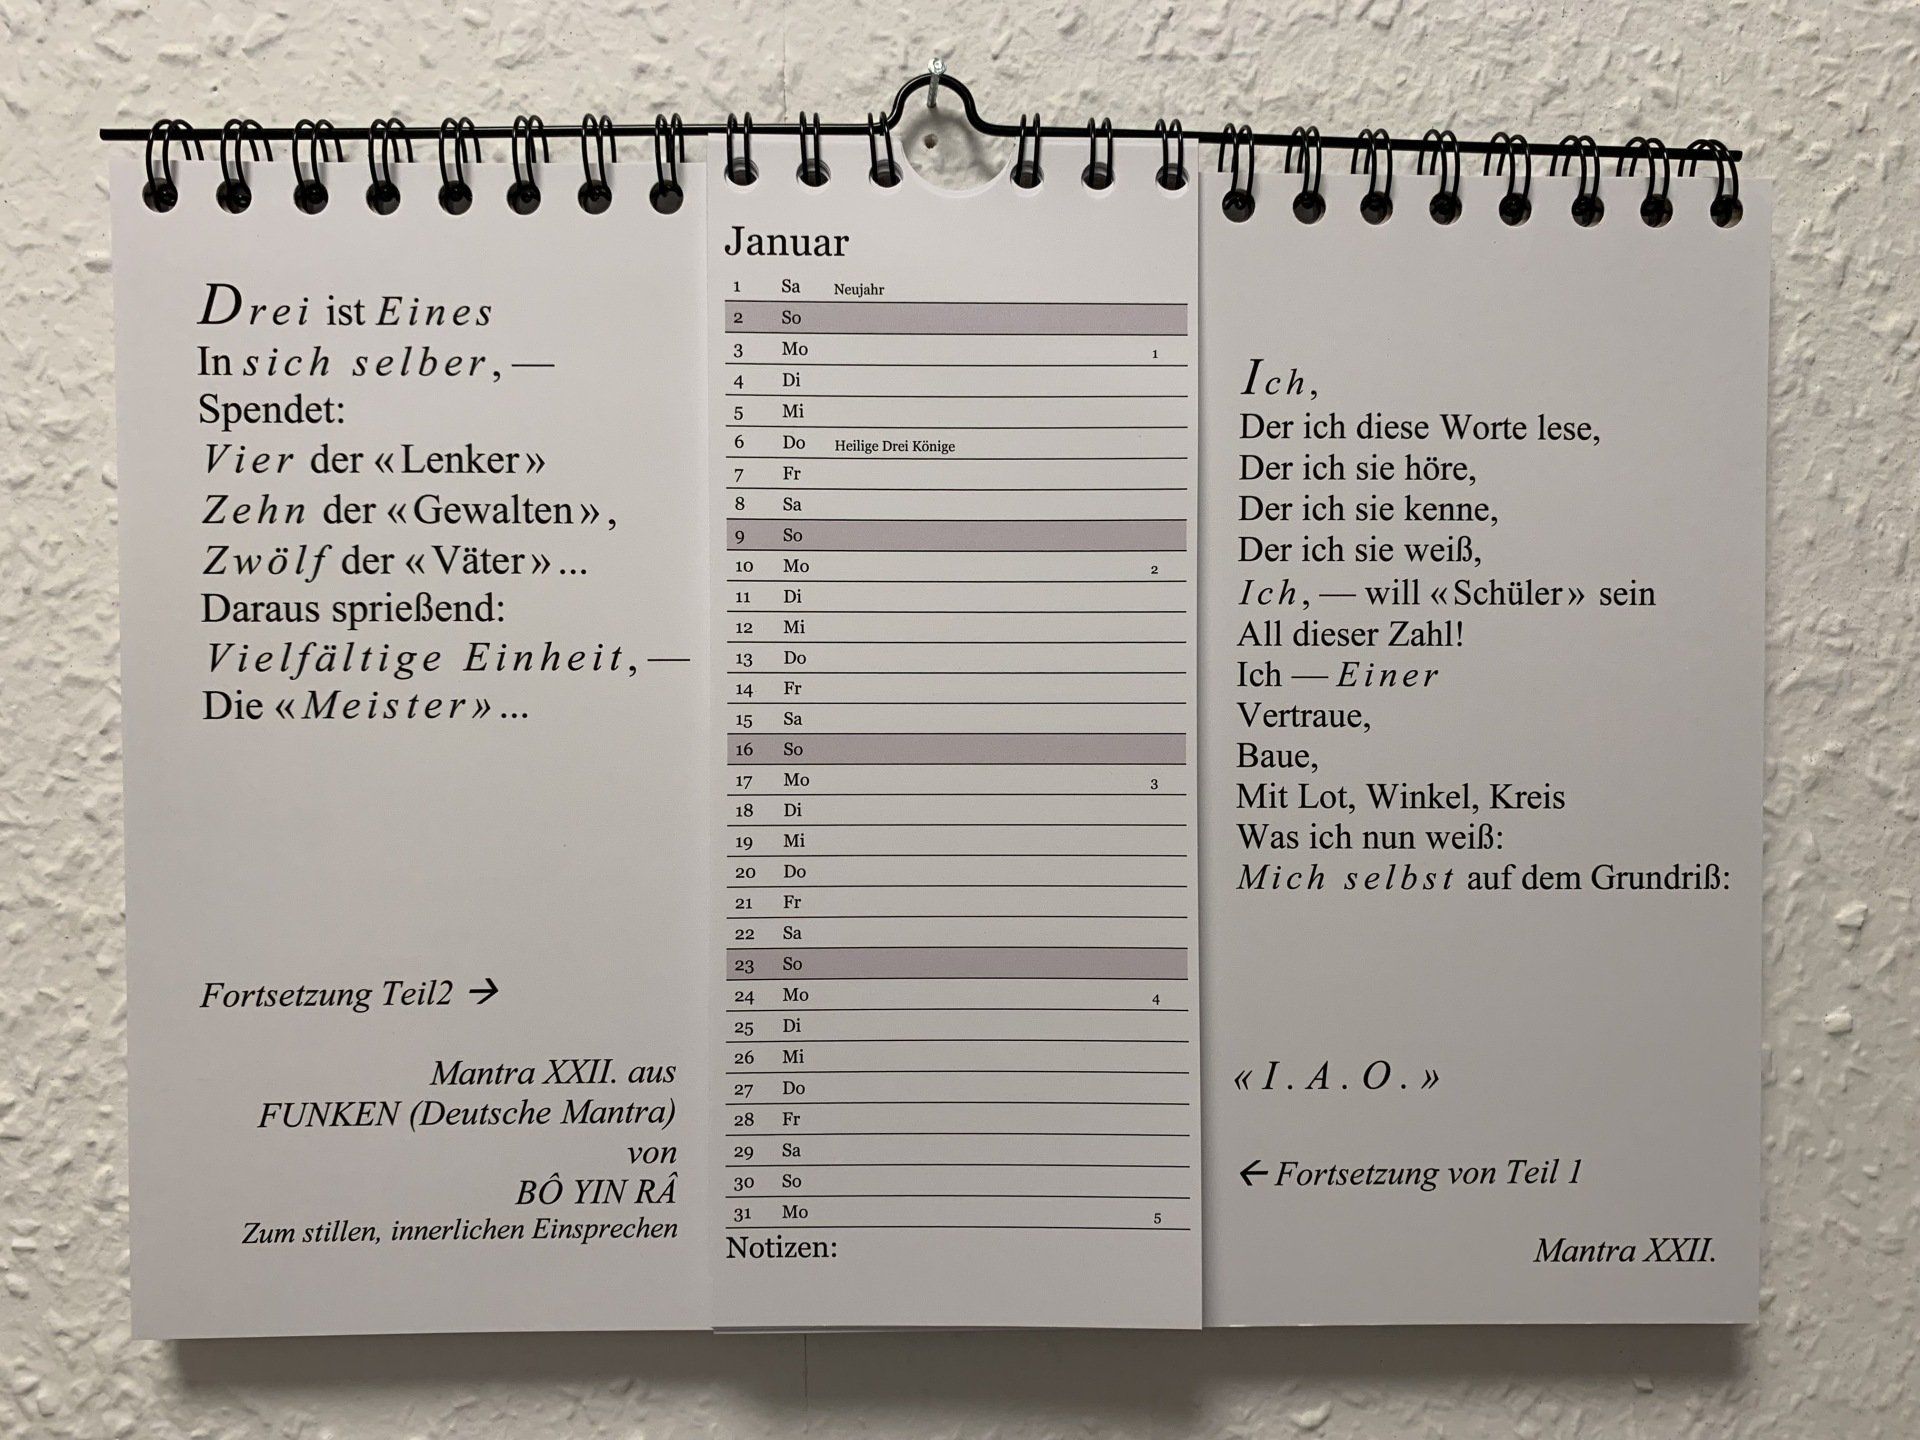 Drei ist Eines
In sich selber, —
Spendet:
Vier der «Lenker»
Zehn der «Gewalten»,
Zwölf der «Väter»...
Daraus sprießend:
Vielfältige Einheit, —
Die «Meister»...
Fortsetzung Teil2 →
Mantra XXII. aus
FUNKEN (Deutsche Mantra)
von
BÔ YIN RÂ
Zum stillen, innerlichen Einsprechen
Januar
1 Sa Neujahr
2 So
3 Mo 1
4 Di
5 Mi
6 Do Heilige Drei Könige
7 Fr
8 Sa
9 So
10 Mo 2
11 Di
12 Mi
13 Do
14 Fr
15 Sa
16 So
17 Mo 3
18 Di
19 Mi
20 Do
21 Fr
22 Sa
23 So
24 Mo 4
25 Di
26 Mi
27 Do
28 Fr
29 Sa
30 So
31 Mo 5
Notizen:
Ich,
Der ich diese Worte lese,
Der ich sie höre,
Der ich sie kenne,
Der ich sie weiß,
Ich, — will «Schüler» sein
All dieser Zahl!
Ich — Einer
Vertraue,
Baue,
Mit Lot, Winkel, Kreis
Was ich nun weiß:
Mich selbst auf dem Grundriß:
«I.A.O.»
← Fortsetzung von Teil 1
Mantra XXII.